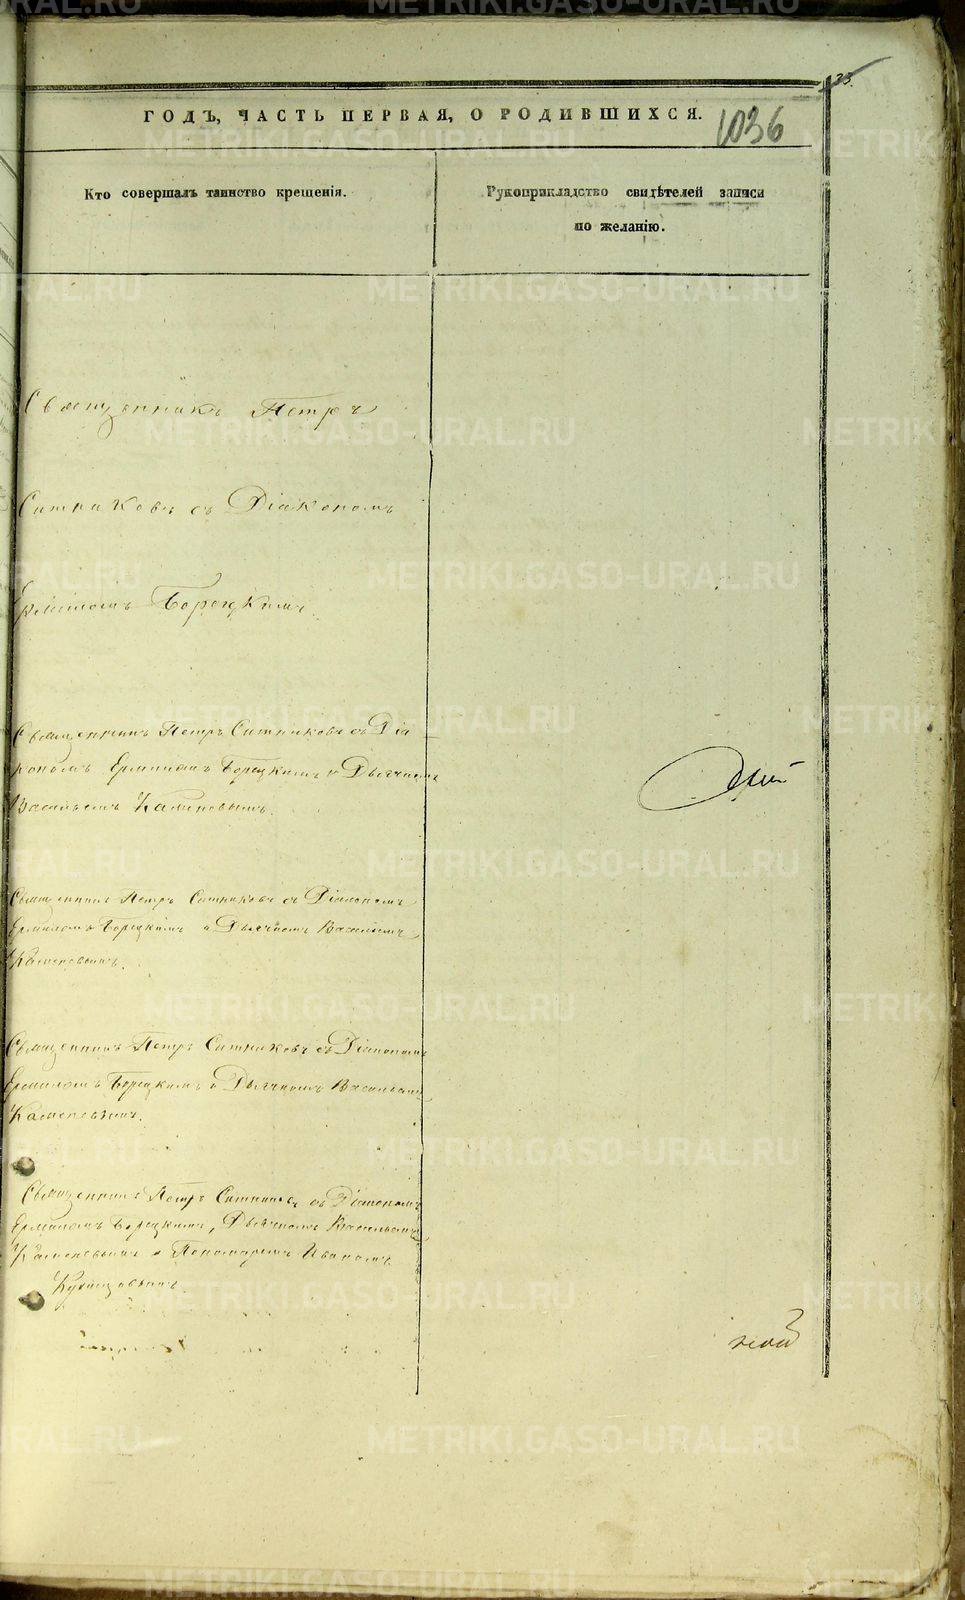 35.
ГОДЪ, ЧАСТЬ ПЕРВАЯ, О РОДИВШИХСЯ.
1036
Кто совершалъ таинство крещенія.
Рукоприкладство свидѣтелей записи
по желанію.
Священникъ Петръ
Ситниковъ съ Діакономъ
Ермиломъ Борецкимъ.
Священникъ Петръ Ситниковъ съ Діа
кономъ Ермиломъ Борецкимъ и Дьячкомъ
Васильемъ Каменовымъ.
Священникъ Петръ Ситниковъ съ Діакономъ
Ермиломъ Борецкимъ и Дьячкомъ Васильемъ
Каменовымъ.
Священникъ Петръ Ситниковъ съ Діакономъ
Ермиломъ Борецкимъ и Дьячкомъ Васильемъ
Каменовымъ.
Священникъ Петръ Ситниковъ съ Діакономъ
Ермиломъ Борецкимъ, Дьячкомъ Васильемъ
Каменовымъ и Пономаремъ Иваномъ
Кузнецовымъ
METRIKI.GASO-URAL.RU